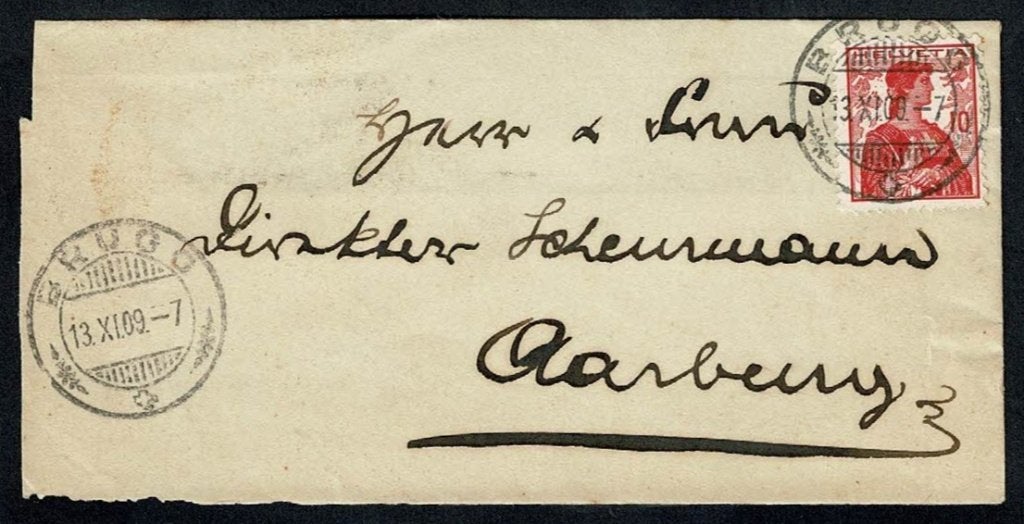 BRUGG
13.XI.09.-7
HELVETIA
10
Herr & Frau
Direktor Scheurmann
Aarburg
BRUGG
13.XI.09.-7